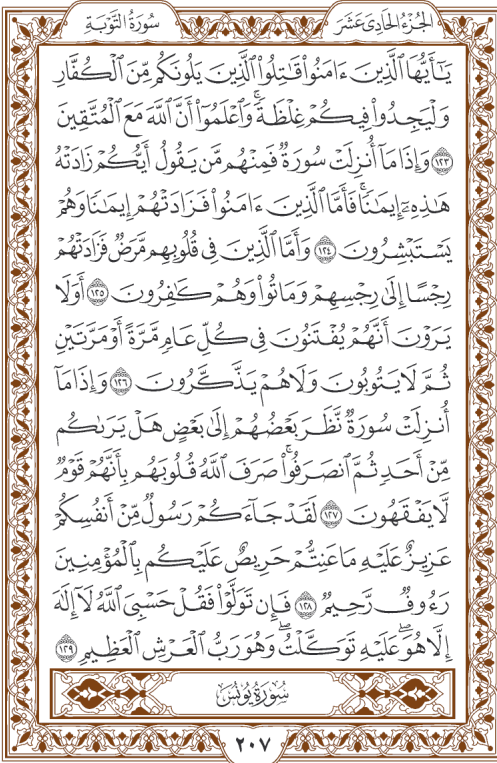 الجُزْءُ الحَادِى عَشَرَ
سُورَةُ التَّوْبَةِ
يَـٰٓأَيُّهَا ٱلَّذِينَ ءَامَنُوا۟ قَـٰتِلُوا۟ ٱلَّذِينَ يَلُونَكُم مِّنَ ٱلْكُفَّارِ
وَلْيَجِدُوا۟ فِيكُمْ غِلْظَةًۚ وَٱعْلَمُوٓا۟ أَنَّ ٱللَّهَ مَعَ ٱلْمُتَّقِينَ
١٢٣ وَإِذَا مَآ أُنزِلَتْ سُورَةٌ فَمِنْهُم مَّن يَقُولُ أَيُّكُمْ زَادَتْهُ
هَـٰذِهِۦٓ إِيمَـٰنًاۚ فَأَمَّا ٱلَّذِينَ ءَامَنُوا۟ فَزَادَتْهُمْ إِيمَـٰنًا وَهُمْ
يَسْتَبْشِرُونَ ١٢٤ وَأَمَّا ٱلَّذِينَ فِى قُلُوبِهِم مَّرَضٌ فَزَادَتْهُمْ
رِجْسًا إِلَىٰ رِجْسِهِمْ وَمَاتُوا۟ وَهُمْ كَـٰفِرُونَ ١٢٥ أَوَلَا
يَرَوْنَ أَنَّهُمْ يُفْتَنُونَ فِى كُلِّ عَامٍ مَّرَّةً أَوْ مَرَّتَيْنِ
ثُمَّ لَا يَتُوبُونَ وَلَا هُمْ يَذَّكَّرُونَ ١٢٦ وَإِذَا مَآ
أُنزِلَتْ سُورَةٌ نَّظَرَ بَعْضُهُمْ إِلَىٰ بَعْضٍ هَلْ يَرَىٰكُم
مِّنْ أَحَدٍ ثُمَّ ٱنصَرَفُوا۟ۚ صَرَفَ ٱللَّهُ قُلُوبَهُم بِأَنَّهُمْ قَوْمٌ
لَّا يَفْقَهُونَ ١٢٧ لَقَدْ جَآءَكُمْ رَسُولٌ مِّنْ أَنفُسِكُمْ
عَزِيزٌ عَلَيْهِ مَا عَنِتُّمْ حَرِيصٌ عَلَيْكُم بِٱلْمُؤْمِنِينَ
رَءُوفٌ رَّحِيمٌ ١٢٨ فَإِن تَوَلَّوْا۟ فَقُلْ حَسْبِىَ ٱللَّهُ لَآ إِلَـٰهَ
إِلَّا هُوَۖ عَلَيْهِ تَوَكَّلْتُۖ وَهُوَ رَبُّ ٱلْعَرْشِ ٱلْعَظِيمِ ١٢٩
سُورَةُ يُونُسَ
٢٠٧